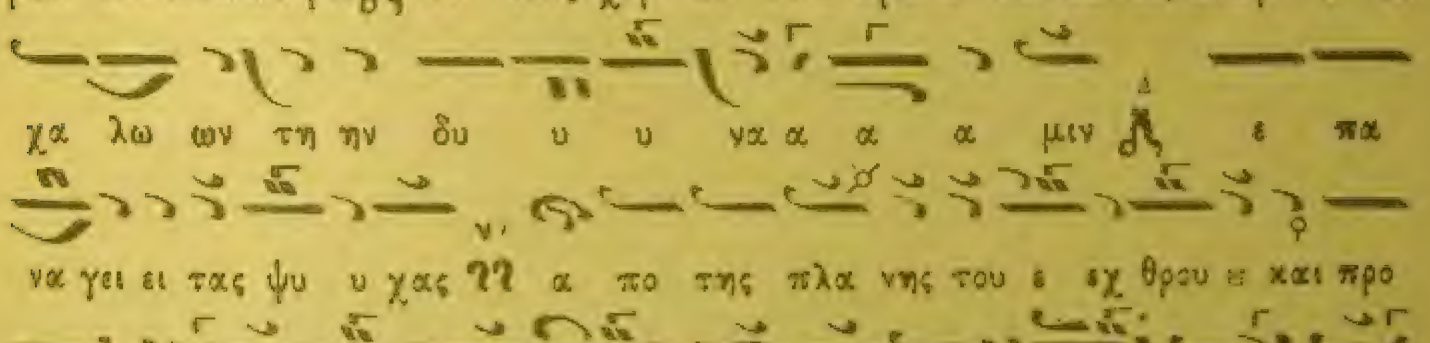 χα λω ων τη ην δυ υ υ να α α α μιν ε πα
να γει ει τας ψυ υ χας α πο της πλα νης του ε εχ θρου και προ